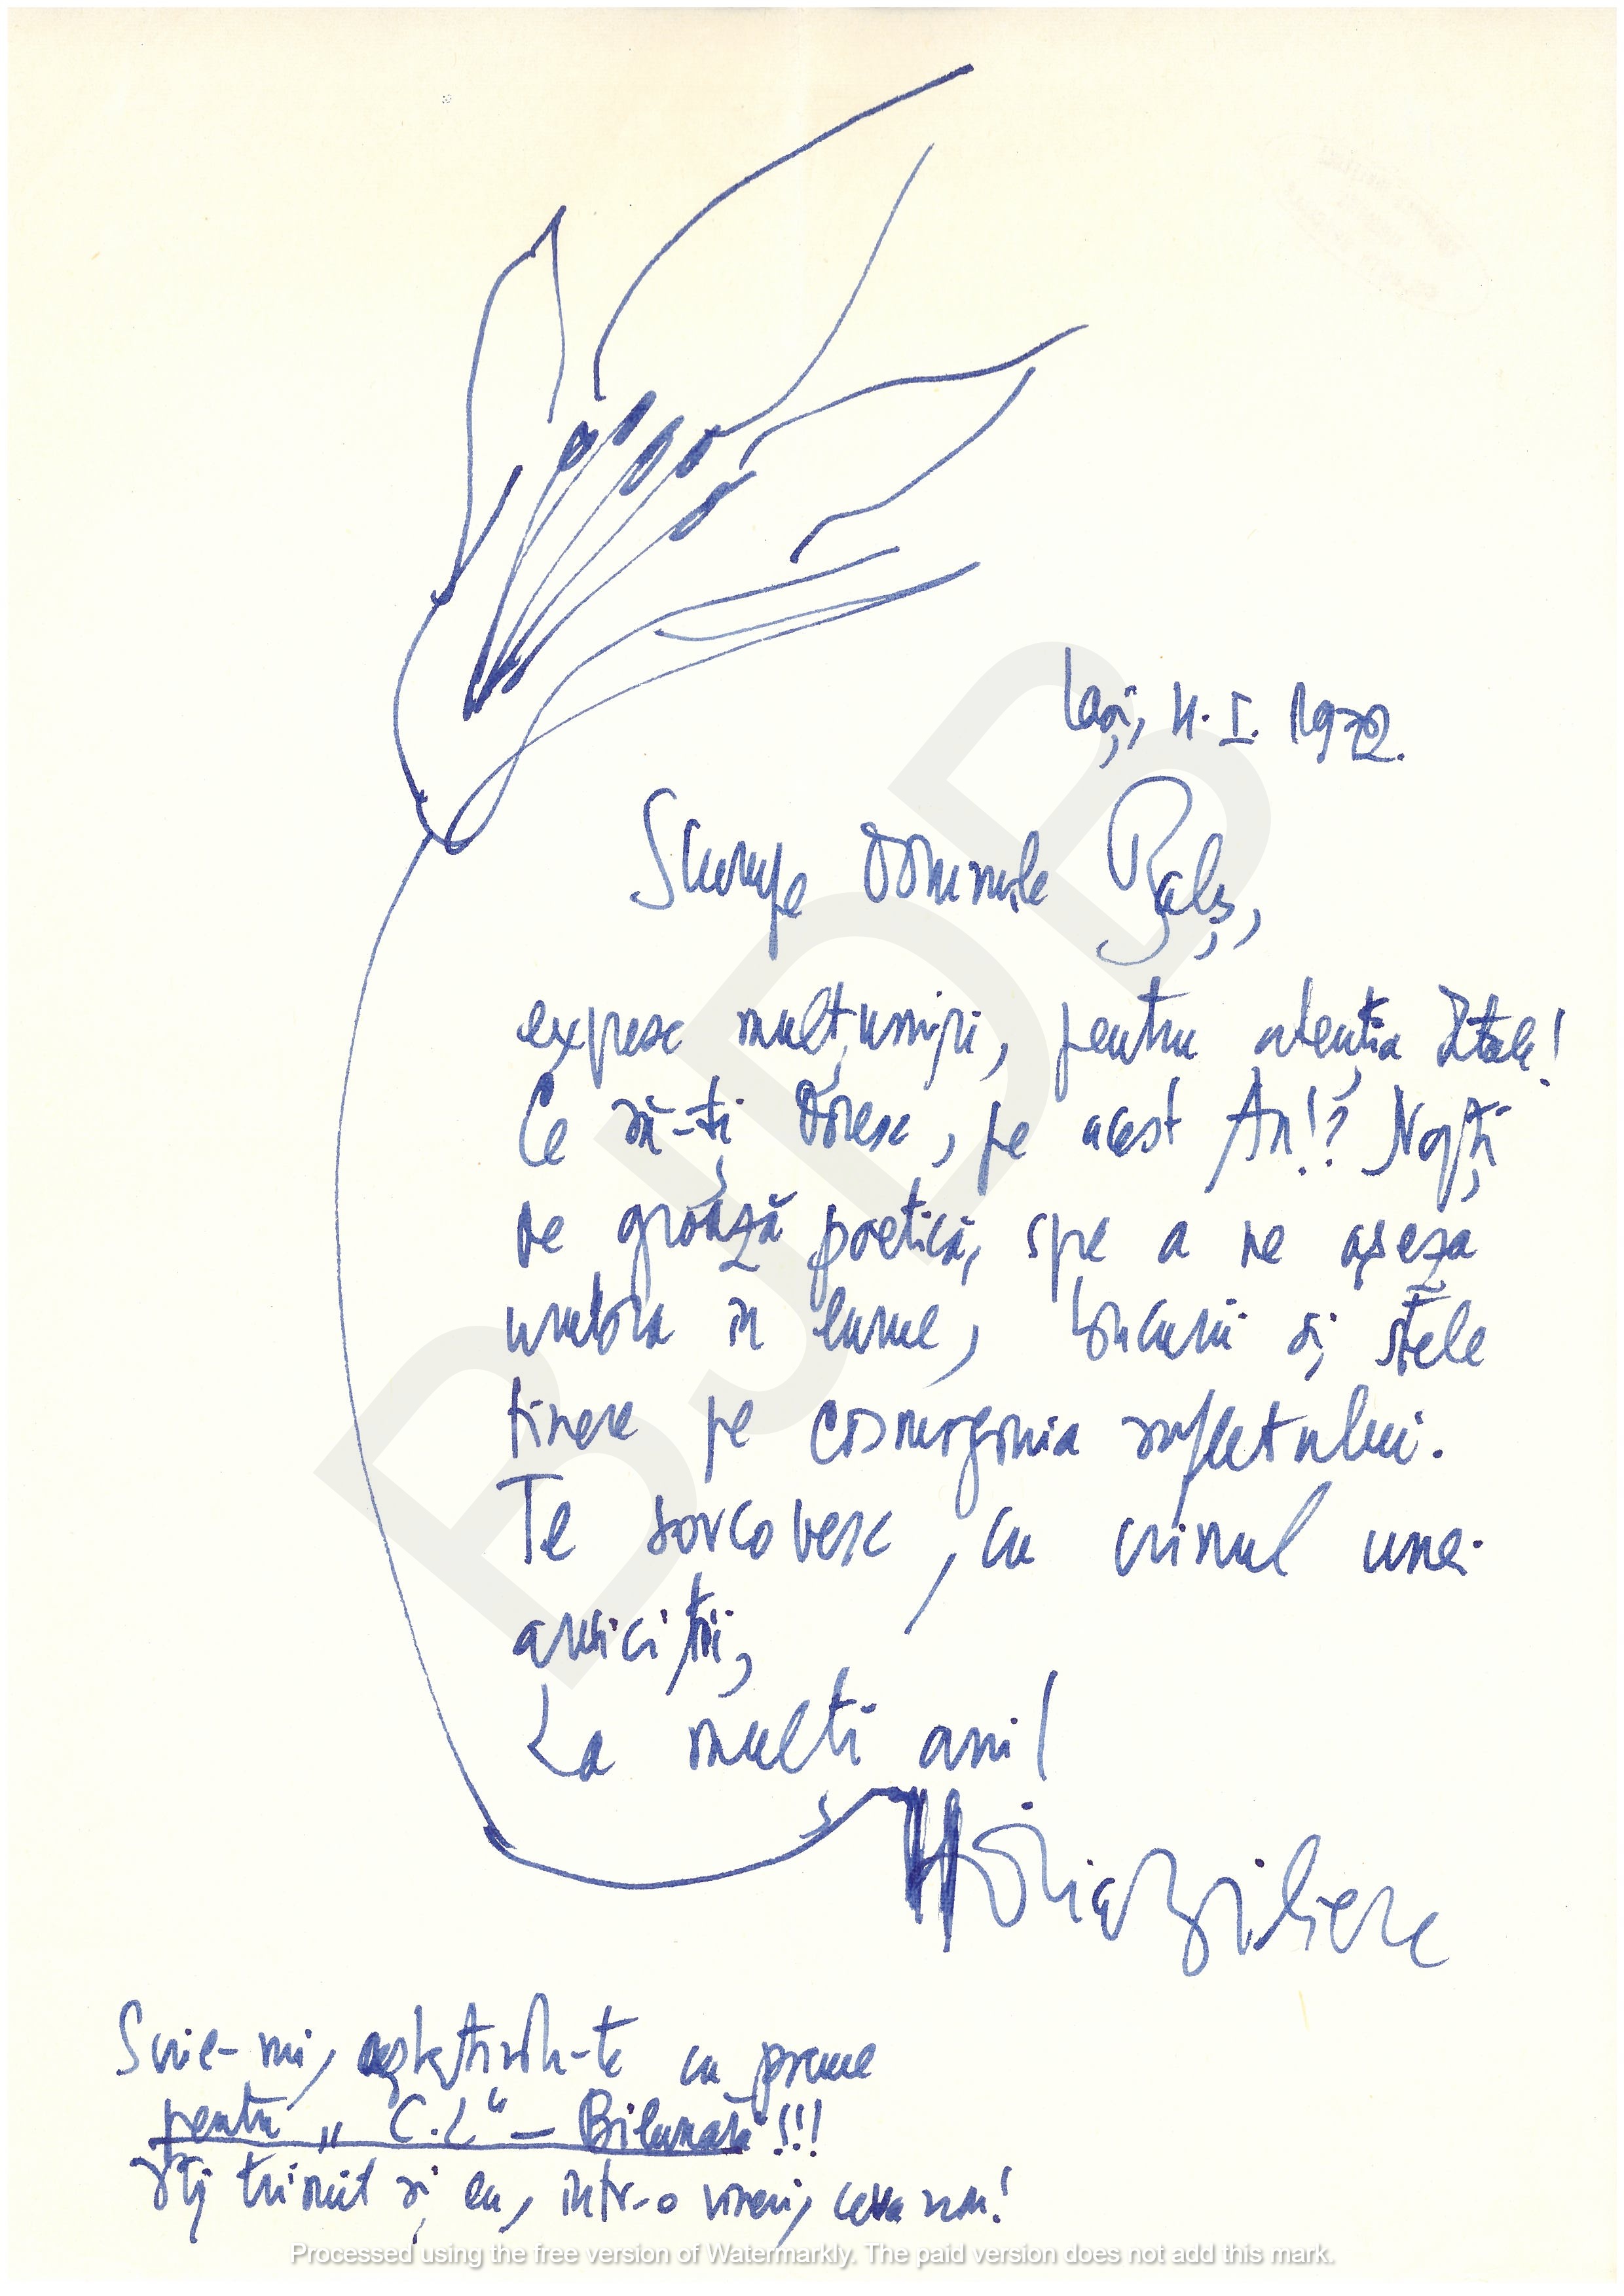 Iași, 4. I. 1972.
Scumpe Domnule Balș,
expresc mulțumiri, pentru atenția D-tale!
Ce să-ți doresc, pe acest An!? Nopți
de groază poetică, spre a ne așeza
umbra în lume, bucurii și stele
tinere pe cosmogonia sufletului.
Te sorcovesc, cu crinul unei
amiciții,
La mulți ani!
Horia Zilieru
Scrie-mi, cu poeme
pentru „C.L“ – Bilunară!!!
Îți trimit și eu, într-o vineri, ceva nou!
BJDB
Processed using the free version of Watermarkly. The paid version does not add this mark.